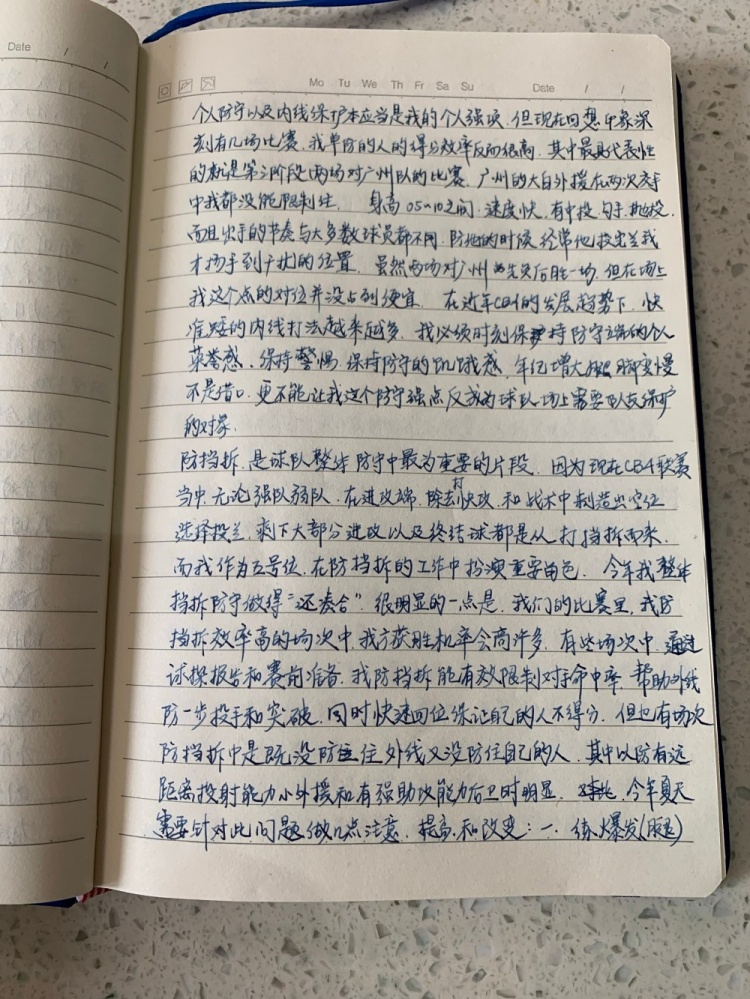 Date / /
Mo Tu We Th Fr Sa Su Date / /
个人防守以及内线保护本应当是我的个人强项,但现在回想印象深
刻有几场比赛,我单防的人的得分效率反而很高,其中最具代表性
的就是第三阶段两场对广州队的比赛,广州的大白外援在两次交手
中我都没能限制住. 身高05~10之间,速度快,有中投,勾手,抛投,
而且出手的节奏与大多数球员都不同,防他的时候经常他投出篮我
才扬手到干扰的位置. 虽然两场对广州先负后胜一场,但在场上
我这个点的对位并没占到便宜. 在近年CBA的发展趋势下,快
准矮的内线打法越来越多,我必须时刻保持防守端的个人
荣誉感,保持警惕,保持防守的饥饿感,年纪增大脚步变慢
不是借口,更不能让我这个防守强点反成为球队场上需要队友保护
的对象.
防挡拆,是球队整体防守中最为重要的片段,因为现在CBA联赛
当中,无论强队弱队,在进攻端,除去打快攻,和战术中制造出空位
选择投篮,剩下大部分进攻以及终结球都是从打挡拆而来,
而我作为五号位,在防挡拆的工作中扮演重要角色. 今年我整体
挡拆防守做得“还凑合”,很明显的一点是,我们的比赛里,我防
挡拆效率高的场次中,我方获胜机率会高许多,有些场次中,通过
球探报告和赛前准备,我防挡拆能有效限制对手命中率,帮助外线
防一步投手和突破,同时快速回位保证自己的人不得分,但也有场次
防挡拆中是既没防住外线又没防住自己的人,其中以防有远
距离投射能力小外援和有强助攻能力后卫时明显. 今年夏天
需要针对此问题做几点注意,提高,和改变:一、练爆发(腿)